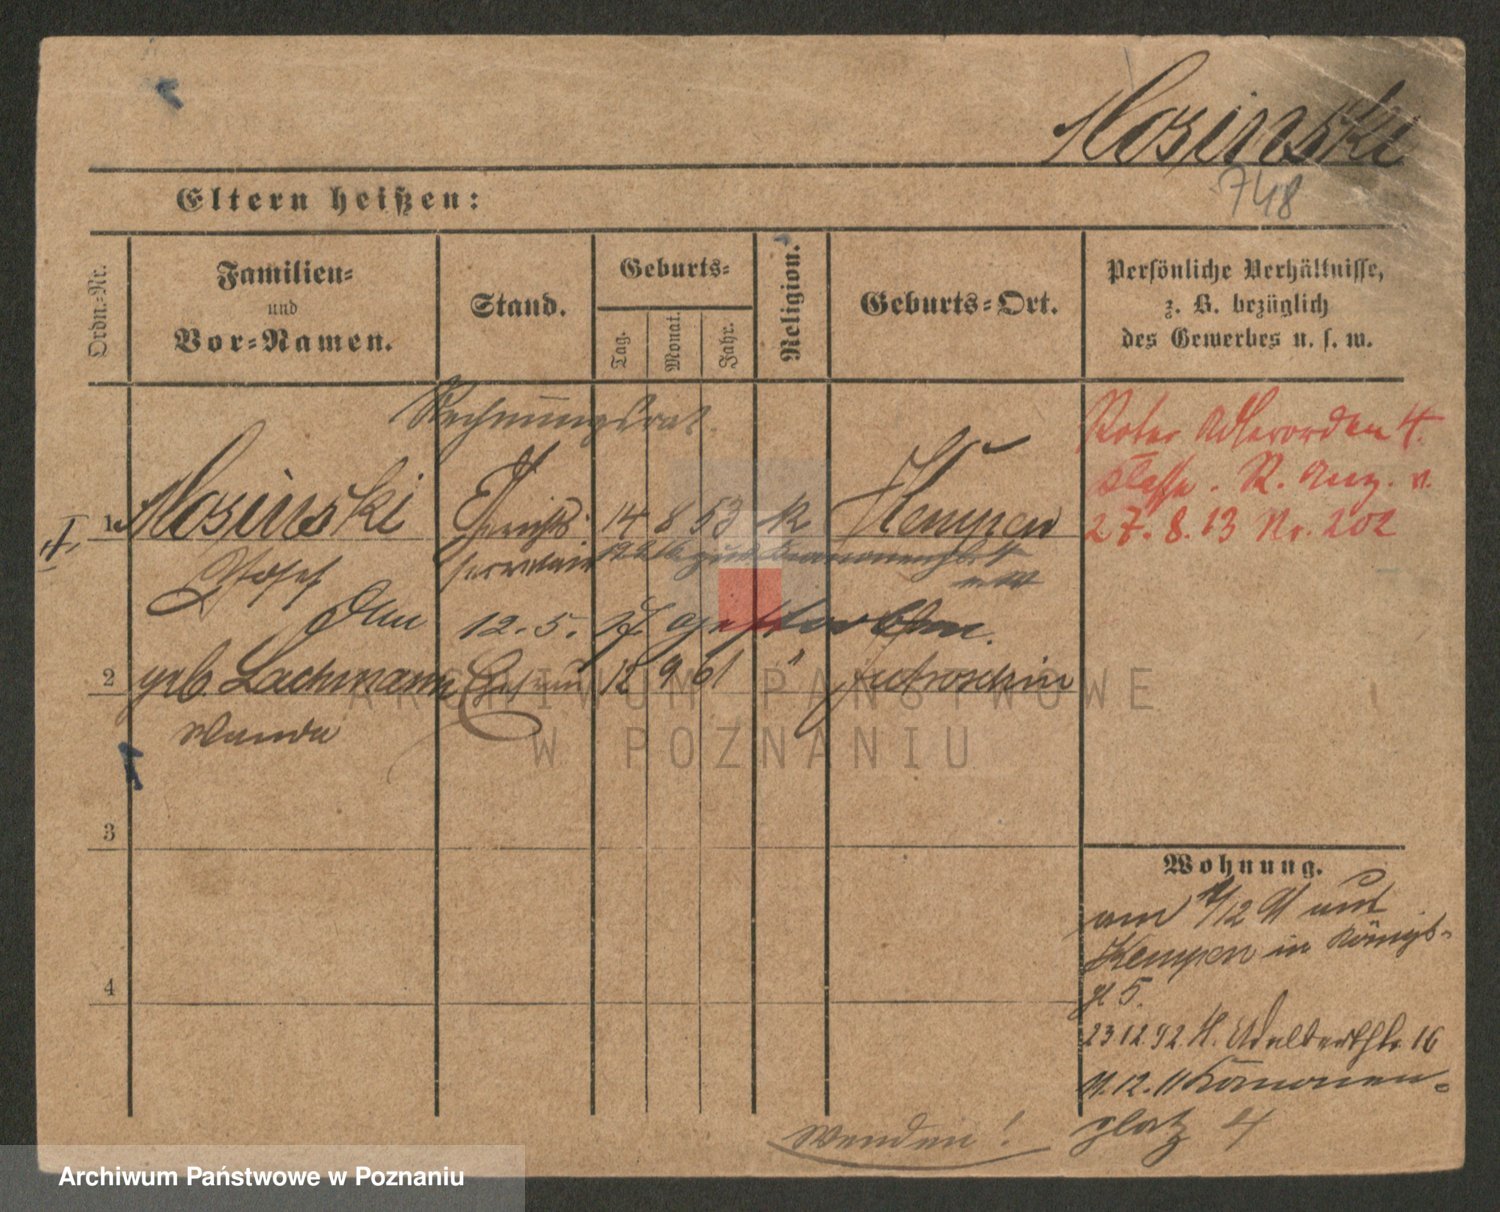 Mosinski
748
Eltern heißen:
Ordn.-Nr.
Familien-
und
Vor-Namen.
Stand.
Geburts-
Tag.
Monat.
Jahr.
Religion.
Geburts-Ort.
Persönliche Verhältnisse,
z. B. bezüglich
des Gewerbes u. s. w.
Rechnungsrat.
Roter Adlerorden 4.
Klasse. R. Anz. v.
27.8.13 Nr. 202
I
1 Mosinski Gerichts- 14 8 53 k Kempen
Josef
Am 12.5. gestorben.
2 geb Lachmann Ehefrau 12 9 61 " Jutroschin
Wanda
3
4
Wohnung.
am 12 91 aus
Kempen in Königs-
pl 5.
23.12.92 Adalbertstr 16
11.12.11 Kanonen-
platz 4
Wenden!
ARCHIWUM PAŃSTWOWE
W POZNANIU
Archiwum Państwowe w Poznaniu